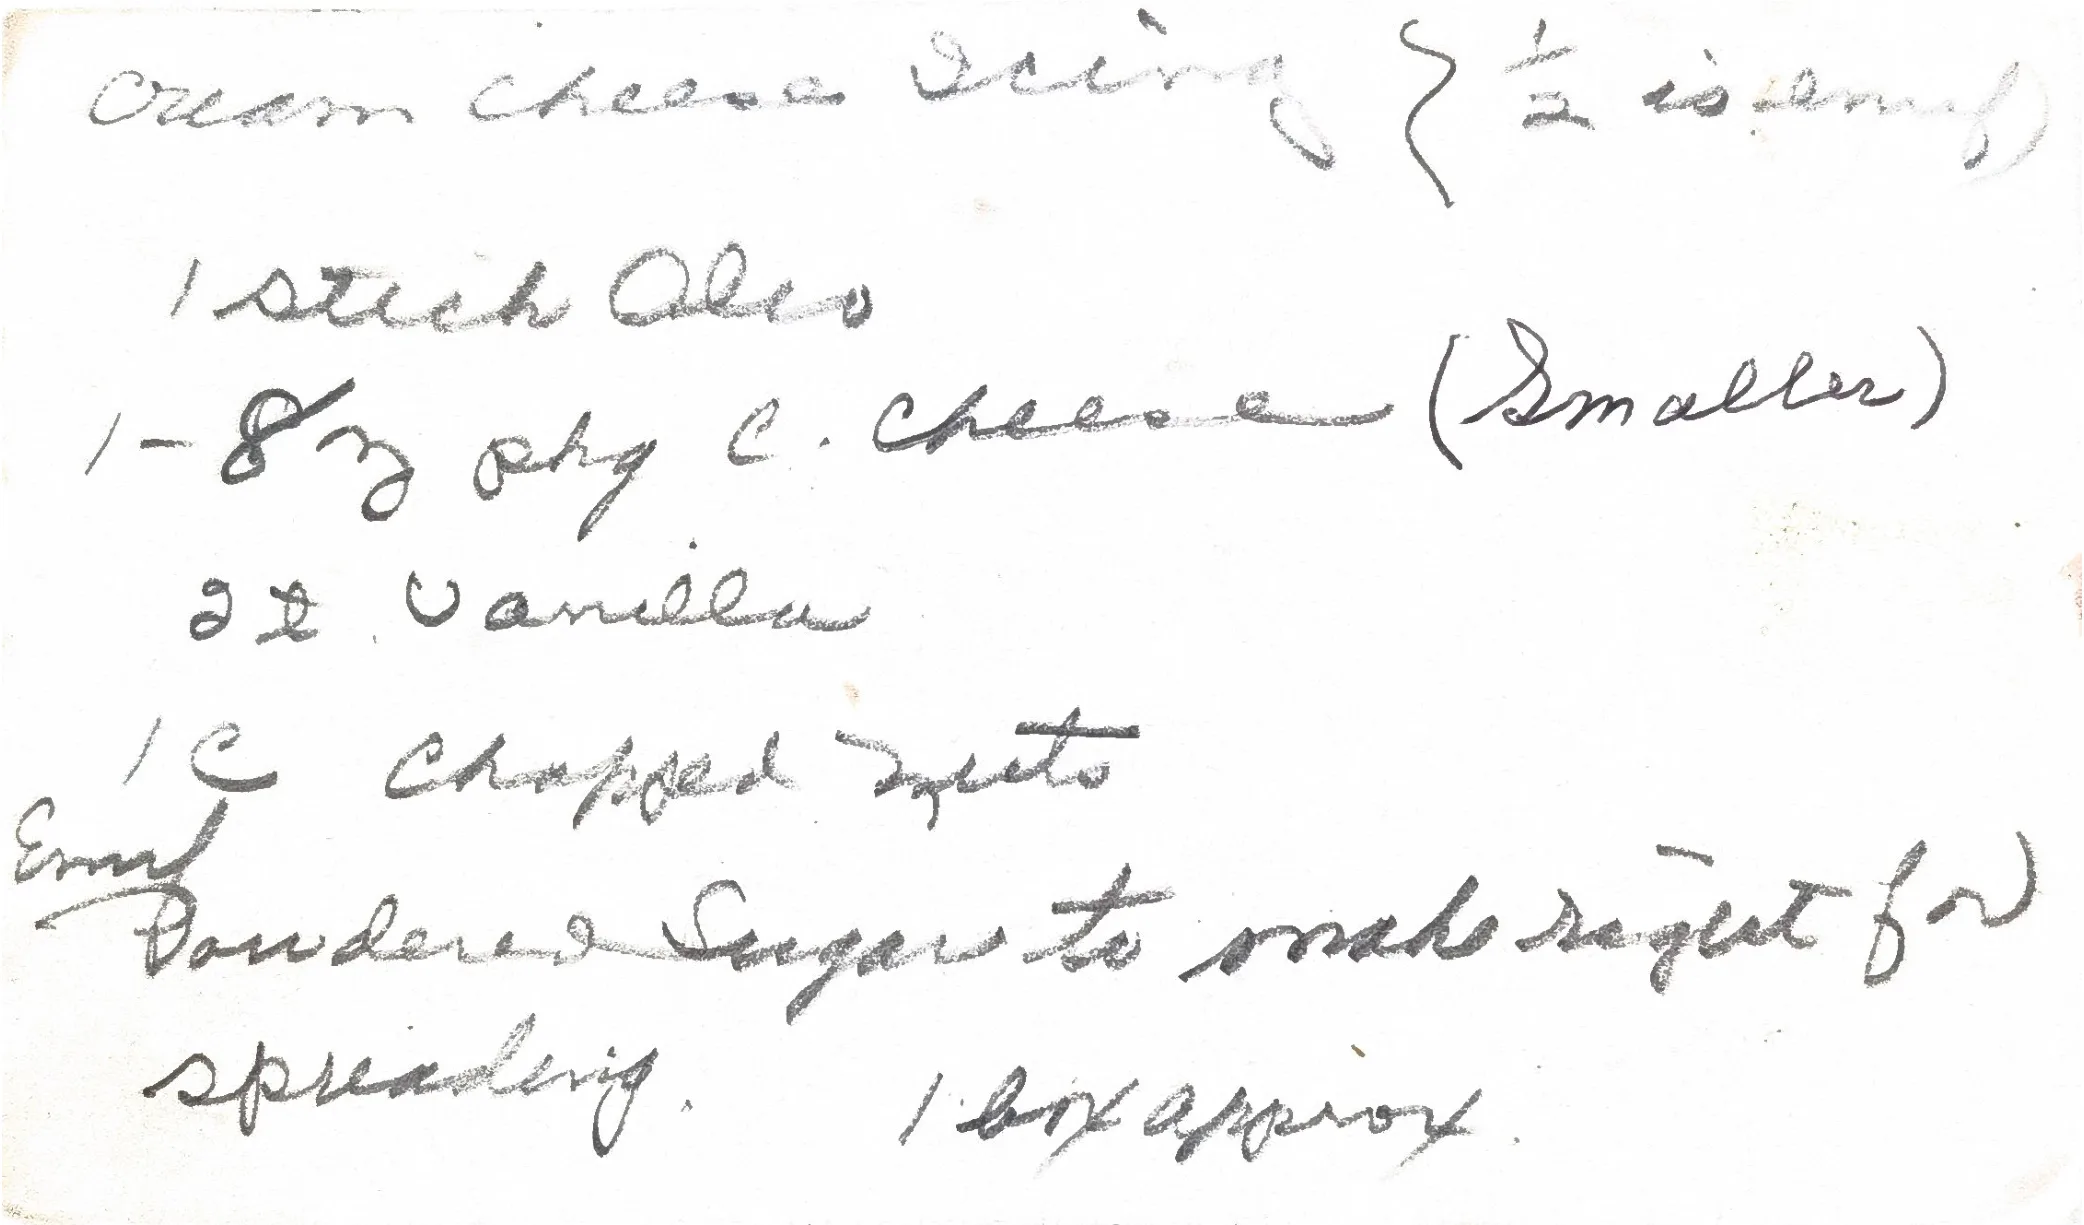 Cream Cheese Icing { 1/2 is enuf)
1 stick Oleo
1 - 8 oz pkg C. Cheese (Smaller)
2 t. Vanilla
1 C Chopped Nuts
Enuf
Powdered Sugar to make right for
spreading. 1 box approx.